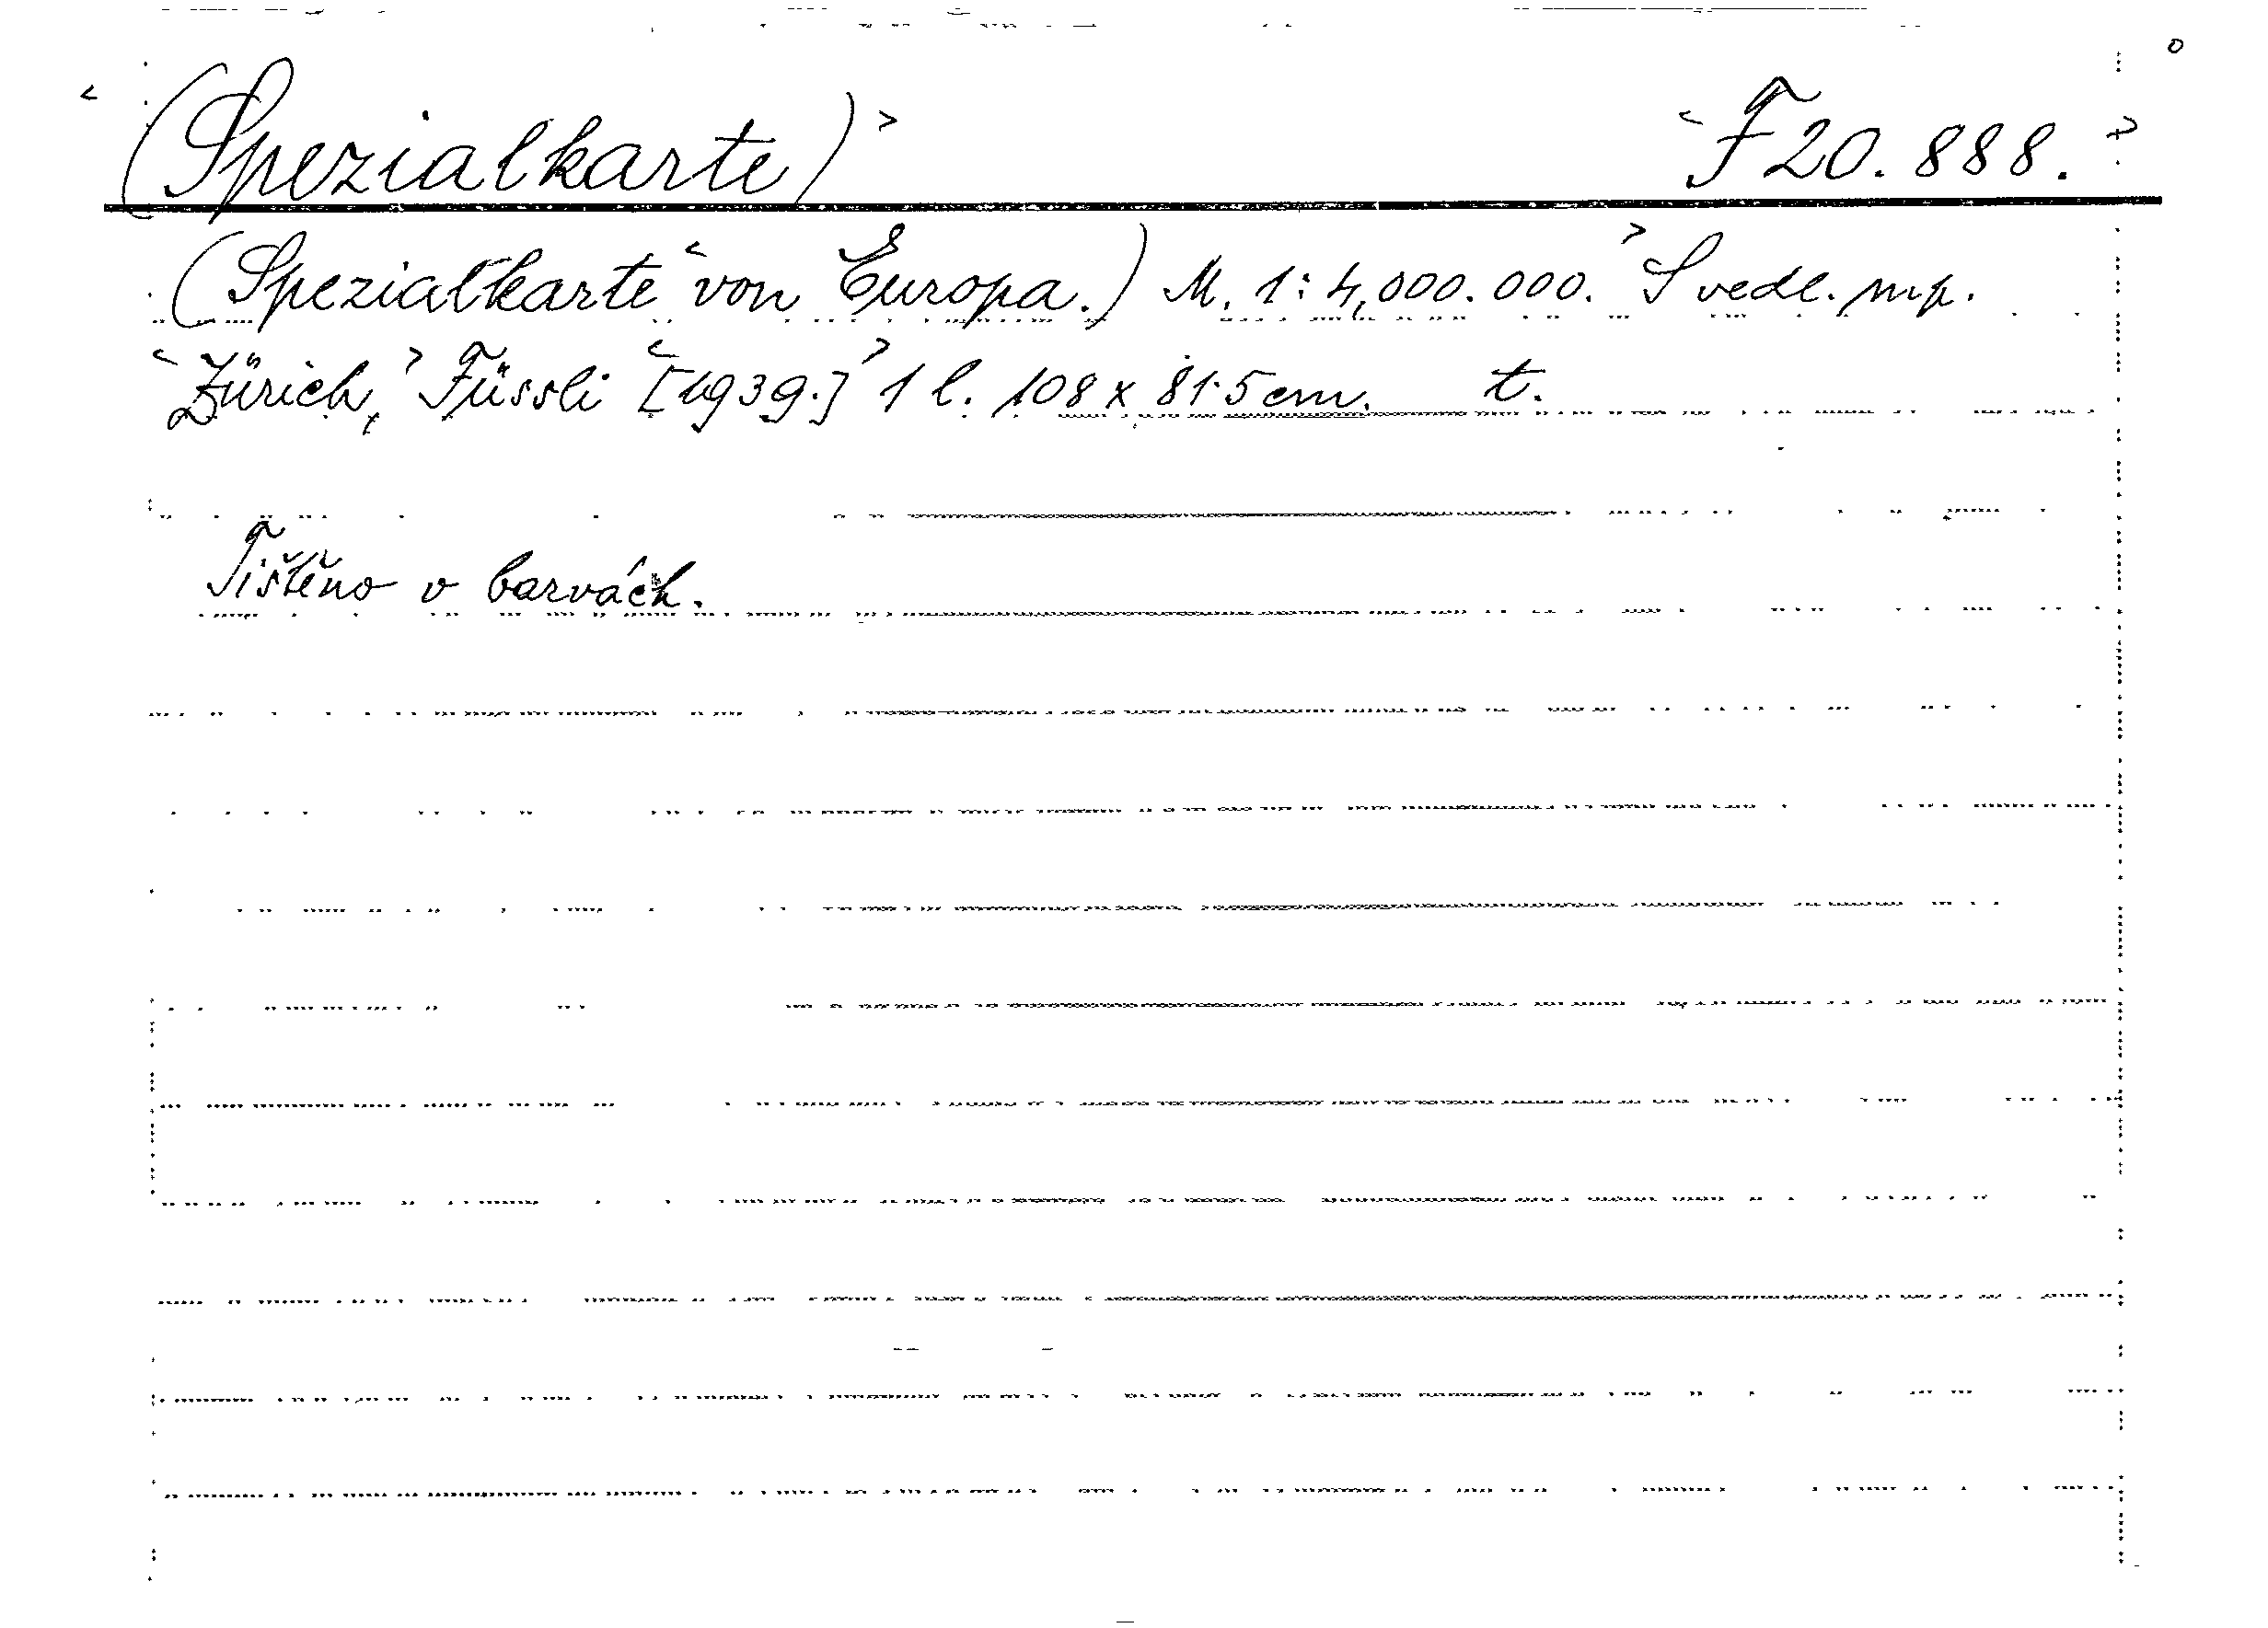 <(Spezialkarte)> <F 20.888.>
(Spezialkarte <von Europa.) M. 1:4,000.000.> S vedl. map.
<Zürich,> Füssli <[1939.]> 1 l. 108 x 81·5 cm. t.
Tištěno v barvách.